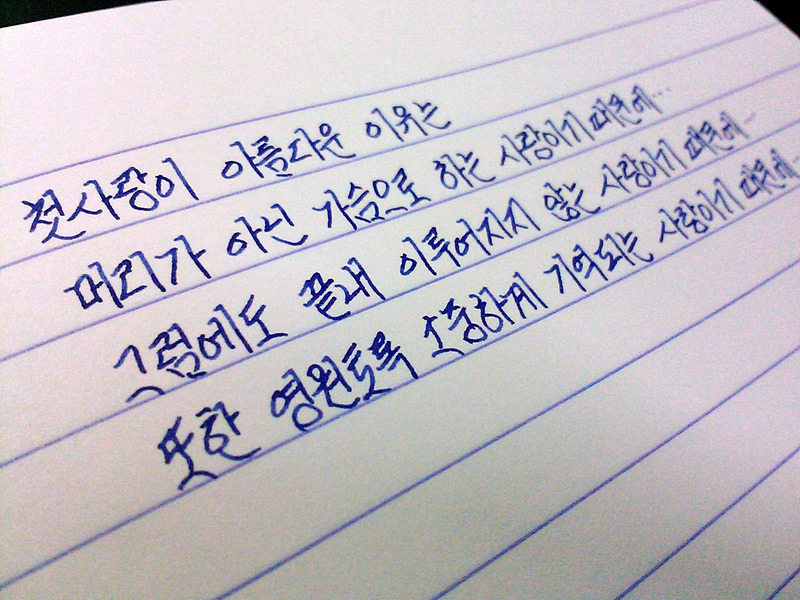 첫사랑이 아름다운 이유는
머리가 아닌 가슴으로 하는 사랑이기 때문에...
그럼에도 끝내 이루어지지 않는 사랑이기 때문에...
또한 영원토록 소중하게 기억되는 사랑이기 때문에...